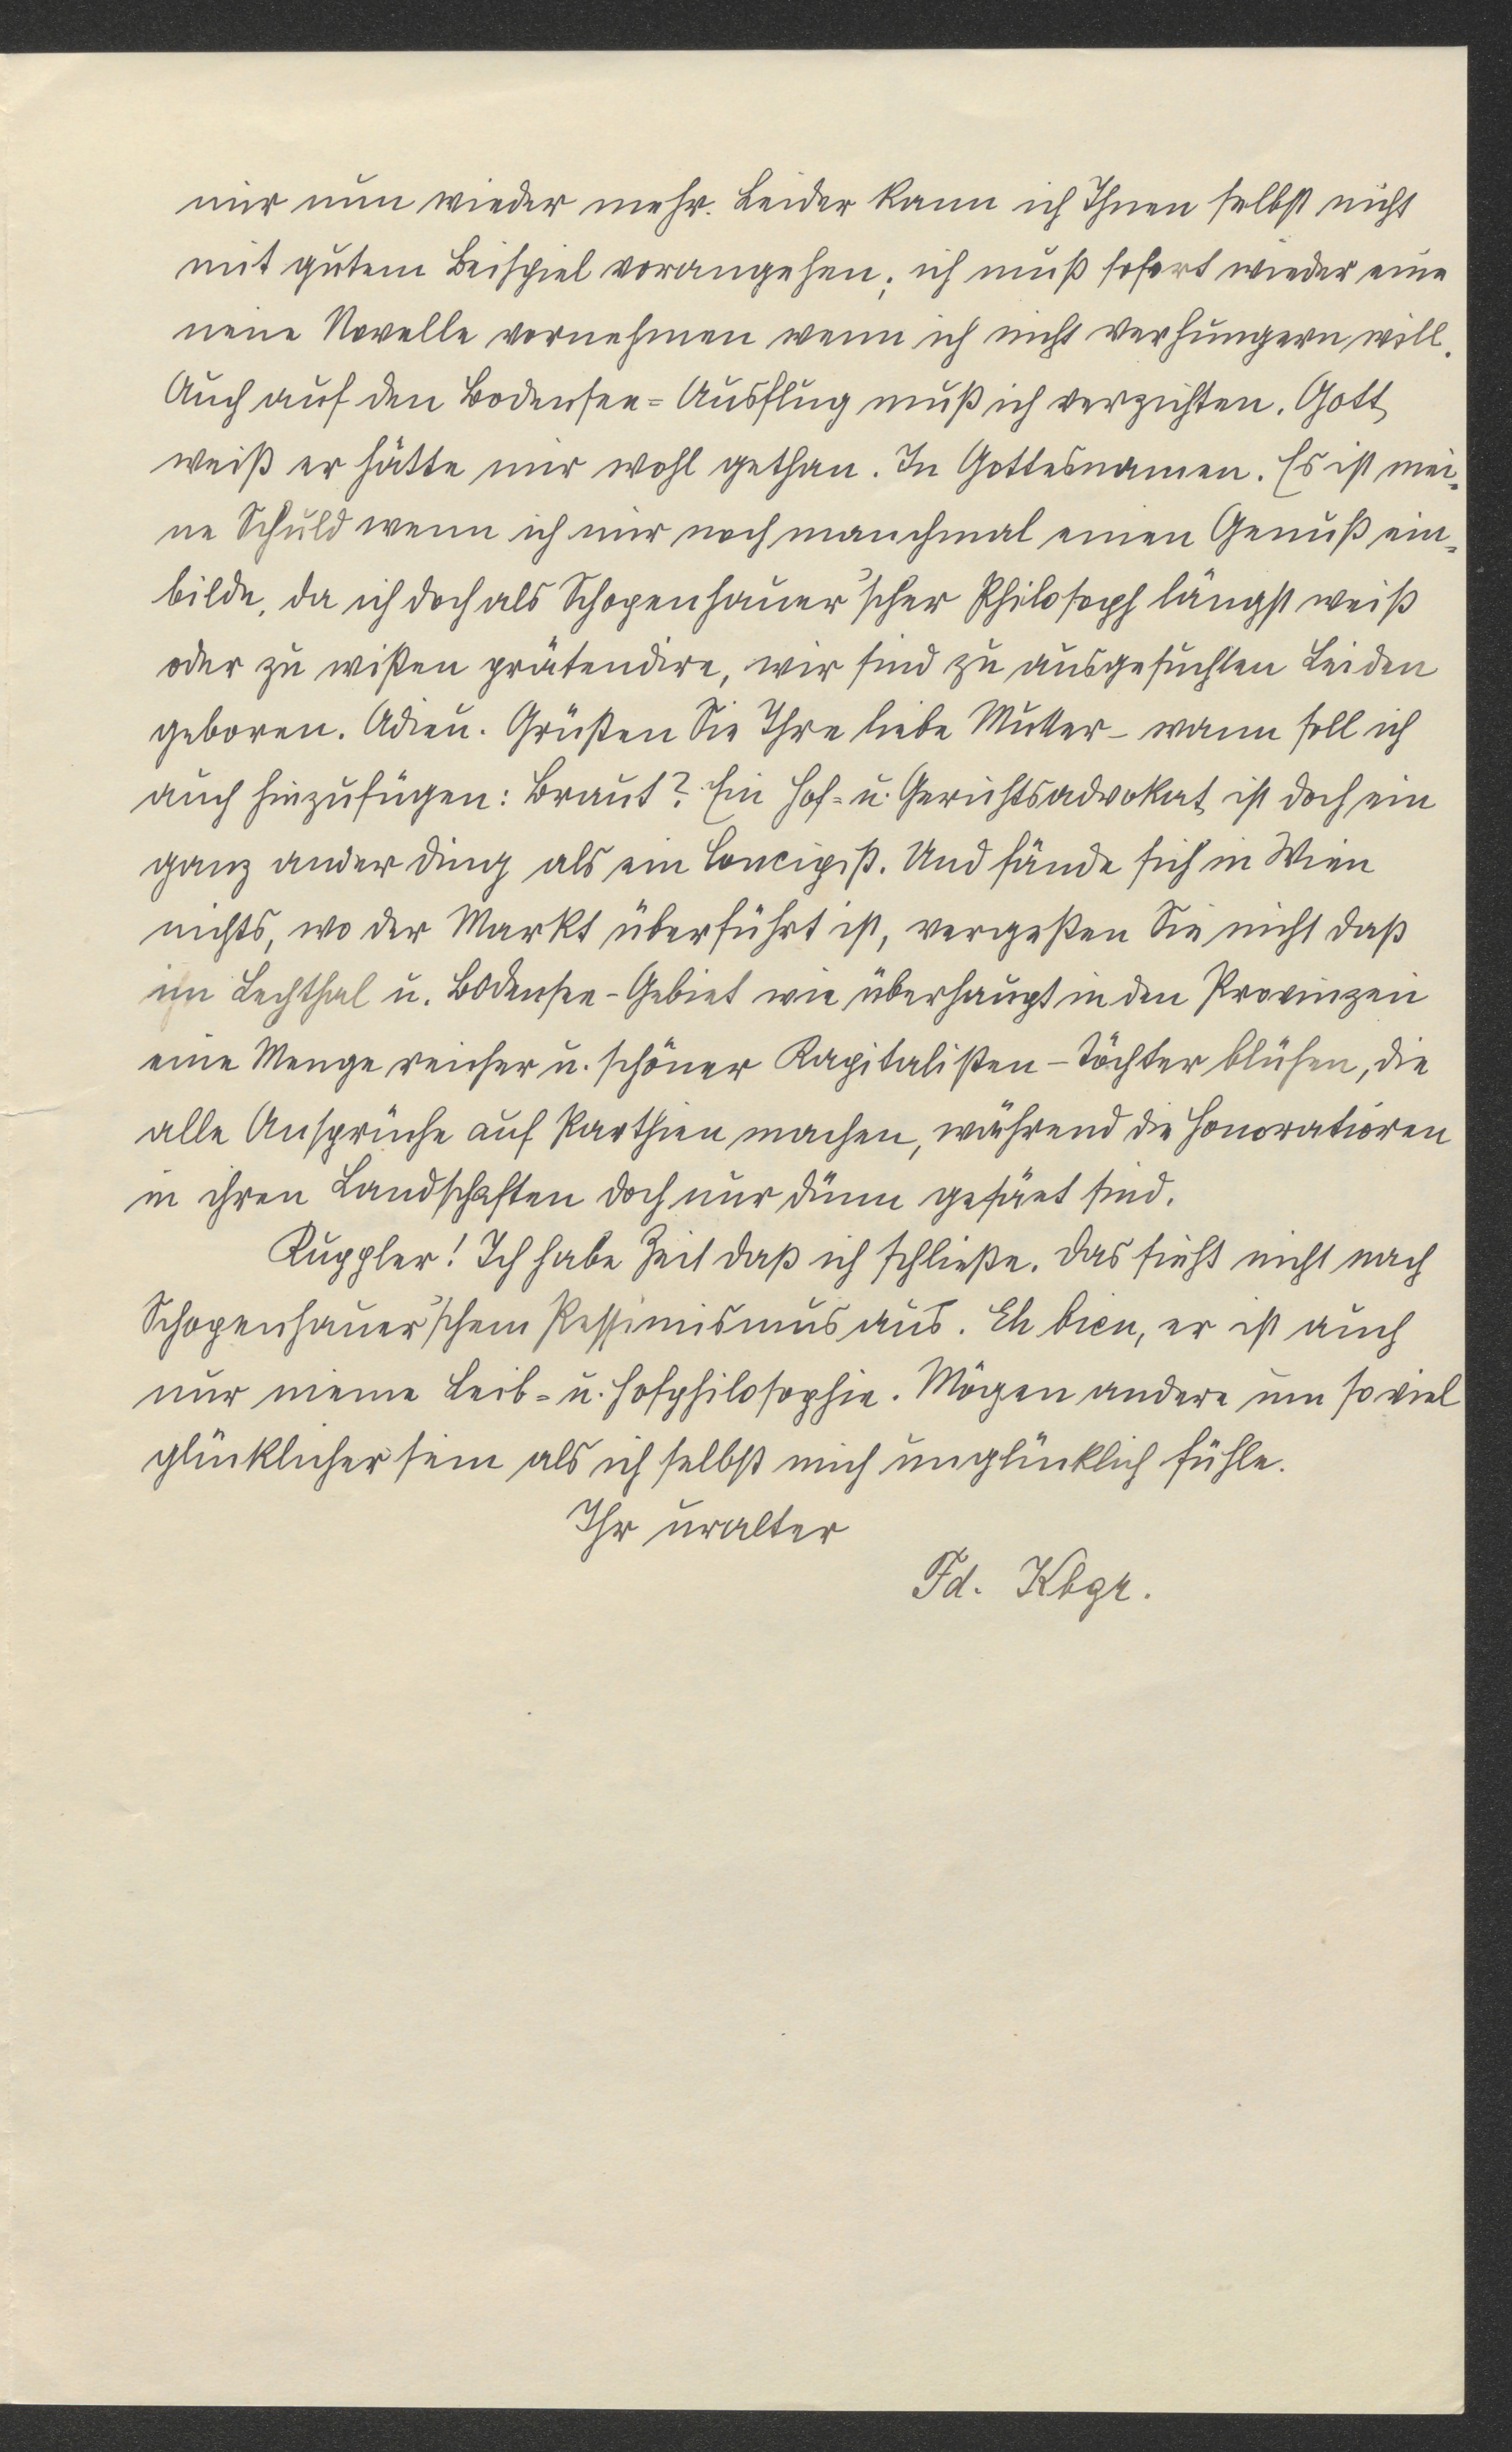 mir nun wieder mehr. Leider kann ich Ihnen selbst nicht
mit gutem Beispiel vorangehen; ich muß sofort wieder eine
neue Novelle vornehmen wenn ich nicht verhungern will.
Auch auf den Bodensee=Ausflug muß ich verzichten. Gott
weiß er hätte mir wohl gethan. In Gottesnamen. Es ist mei=
ne Schuld wenn ich mir noch manchmal einen Genuß ein=
bilde, da ich doch als Schopenhauer'scher Philosoph längst weiß
oder zu wißen prätendire, wir sind zu ausgesuchten Leiden
geboren. Adieu. Grüßen Sie Ihre liebe Mutter – wann soll ich
auch hinzufügen: Braut? Ein Hof= u. Gerichtsadvokat ist doch ein
ganz ander Ding als ein Concipist. Und fände sich in Wien
nichts, wo der Markt überführt ist, vergeßen Sie nicht daß
im Lechthal u. Bodensee-Gebiet wie überhaupt in den Provinzen
eine Menge reicher u. schöner Kapitalisten-Töchter blühen, die
alle Ansprüche auf Parthien machen, während die Honoratioren
in ihren Landschaften doch nur dünn gesäet sind.
Kuppler! Ich habe Zeit daß ich schließe. Das sieht nicht nach
Schopenhauer'schem Pessimismus aus. Eh bien, er ist auch
nur meine Leib= u. Hofphilosophie. Mögen andere um so viel
glücklicher sein als ich selbst mich unglücklich fühle.
Ihr uralter
Fd. Kbgr.